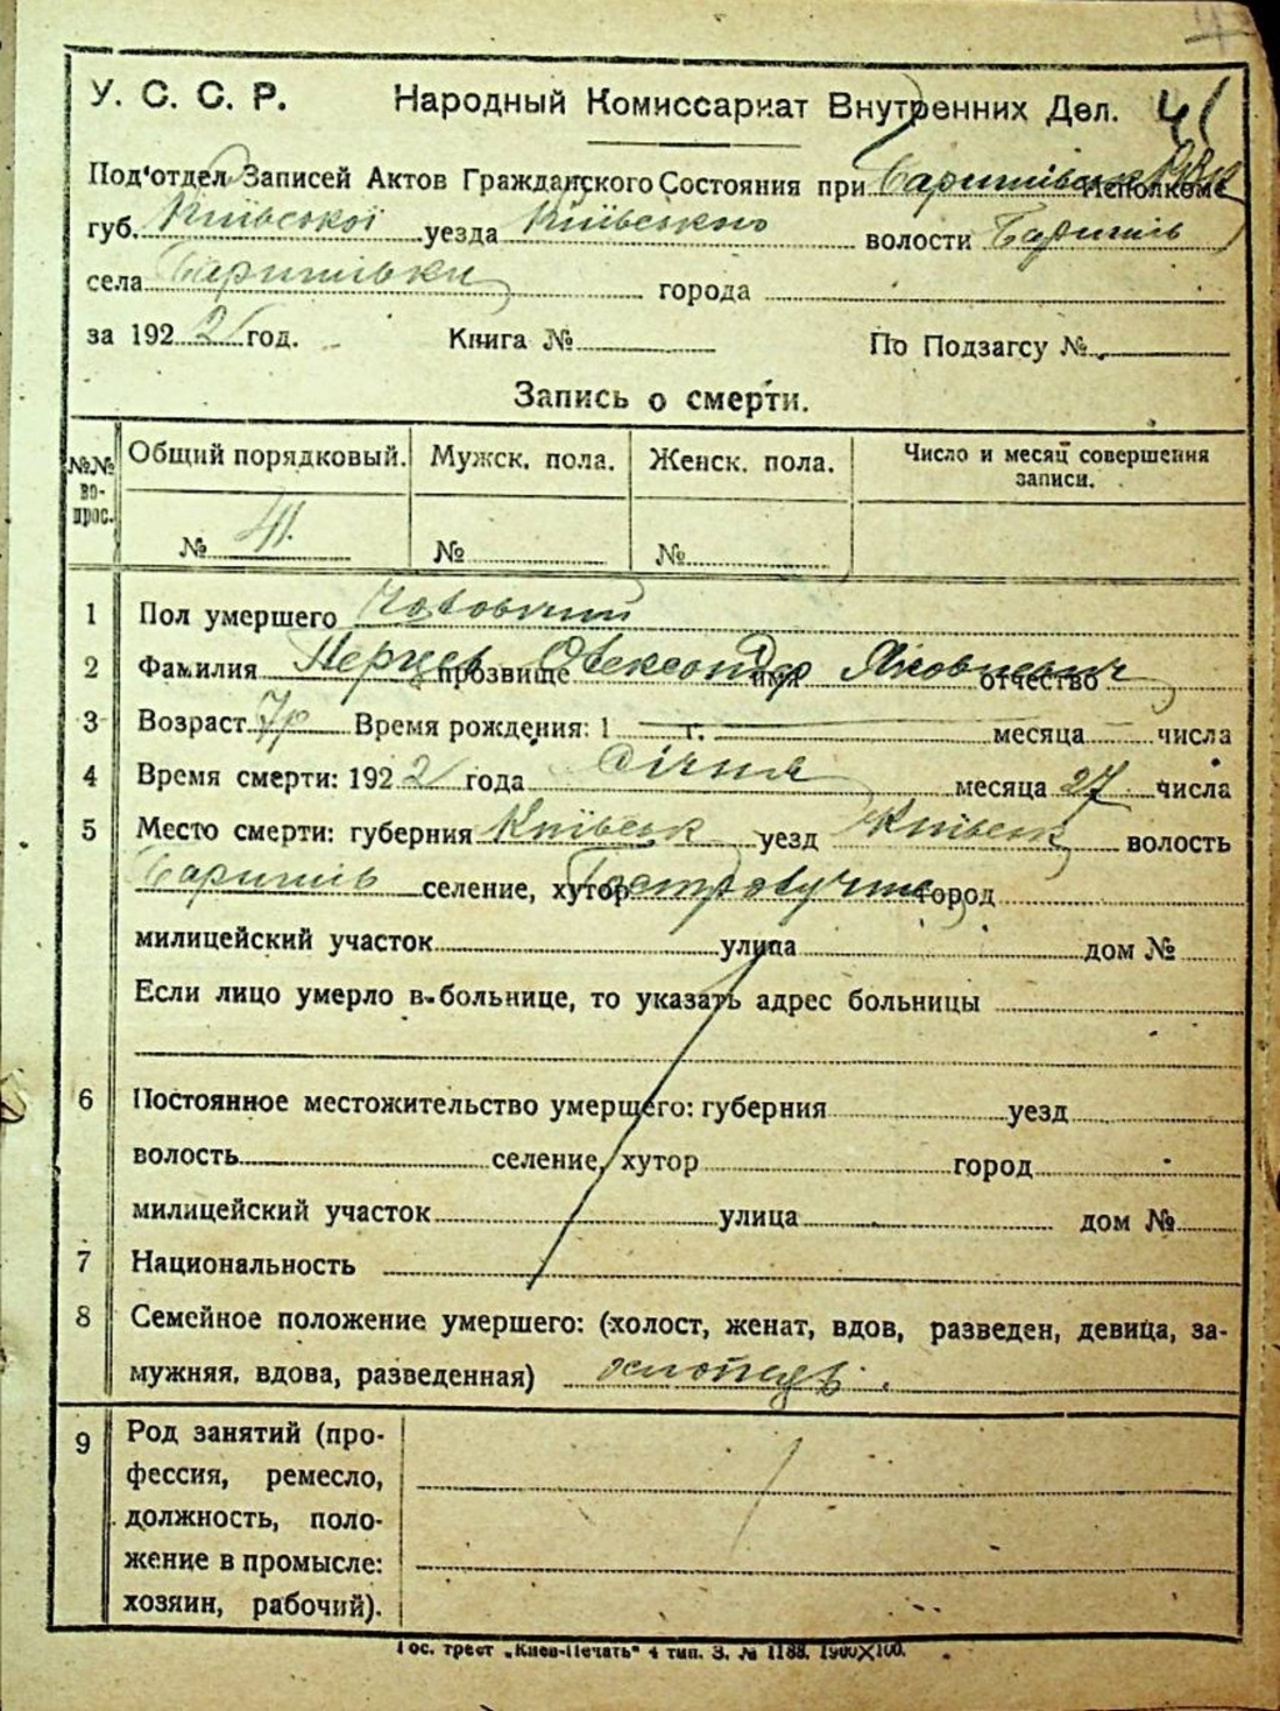 41
У. С. С. Р. Народный Комиссариат Внутренних Дел.
Под'отдел Записей Актов Гражданского Состояния при Баришівськ РВК Исполкоме
губ. Київської уезда Київського волости Баришів
села Баришівки города
за 1922 год. Книга № По Подзагсу №
Запись о смерти.
№№ во- прос. Общий порядковый. Мужск. пола. Женск. пола. Число и месяц совершения записи.
№ 41. № №
1 Пол умершего Чоловичий
2 Фамилия Перцев прозвище Олександр имя Яковлевич отчество
3 Возраст 7р Время рождения: 1 г. месяца числа
4 Время смерти: 1922 года Січня месяца 27 числа
5 Место смерти: губерния Київськ уезд Київськ волость
Баришів селение, хутор город
милицейский участок улица дом №
Если лицо умерло в больнице, то указать адрес больницы
6 Постоянное местожительство умершего: губерния уезд
волость селение, хутор город
милицейский участок улица дом №
7 Национальность
8 Семейное положение умершего: (холост, женат, вдов, разведен, девица, за-
мужняя, вдова, разведенная) хлопець.
9 Род занятий (про-
фессия, ремесло,
должность, поло-
жение в промысле:
хозяин, рабочий).
Гос. трест „Киев-Печать" 4 тип. З. № 1188. 1900×100.